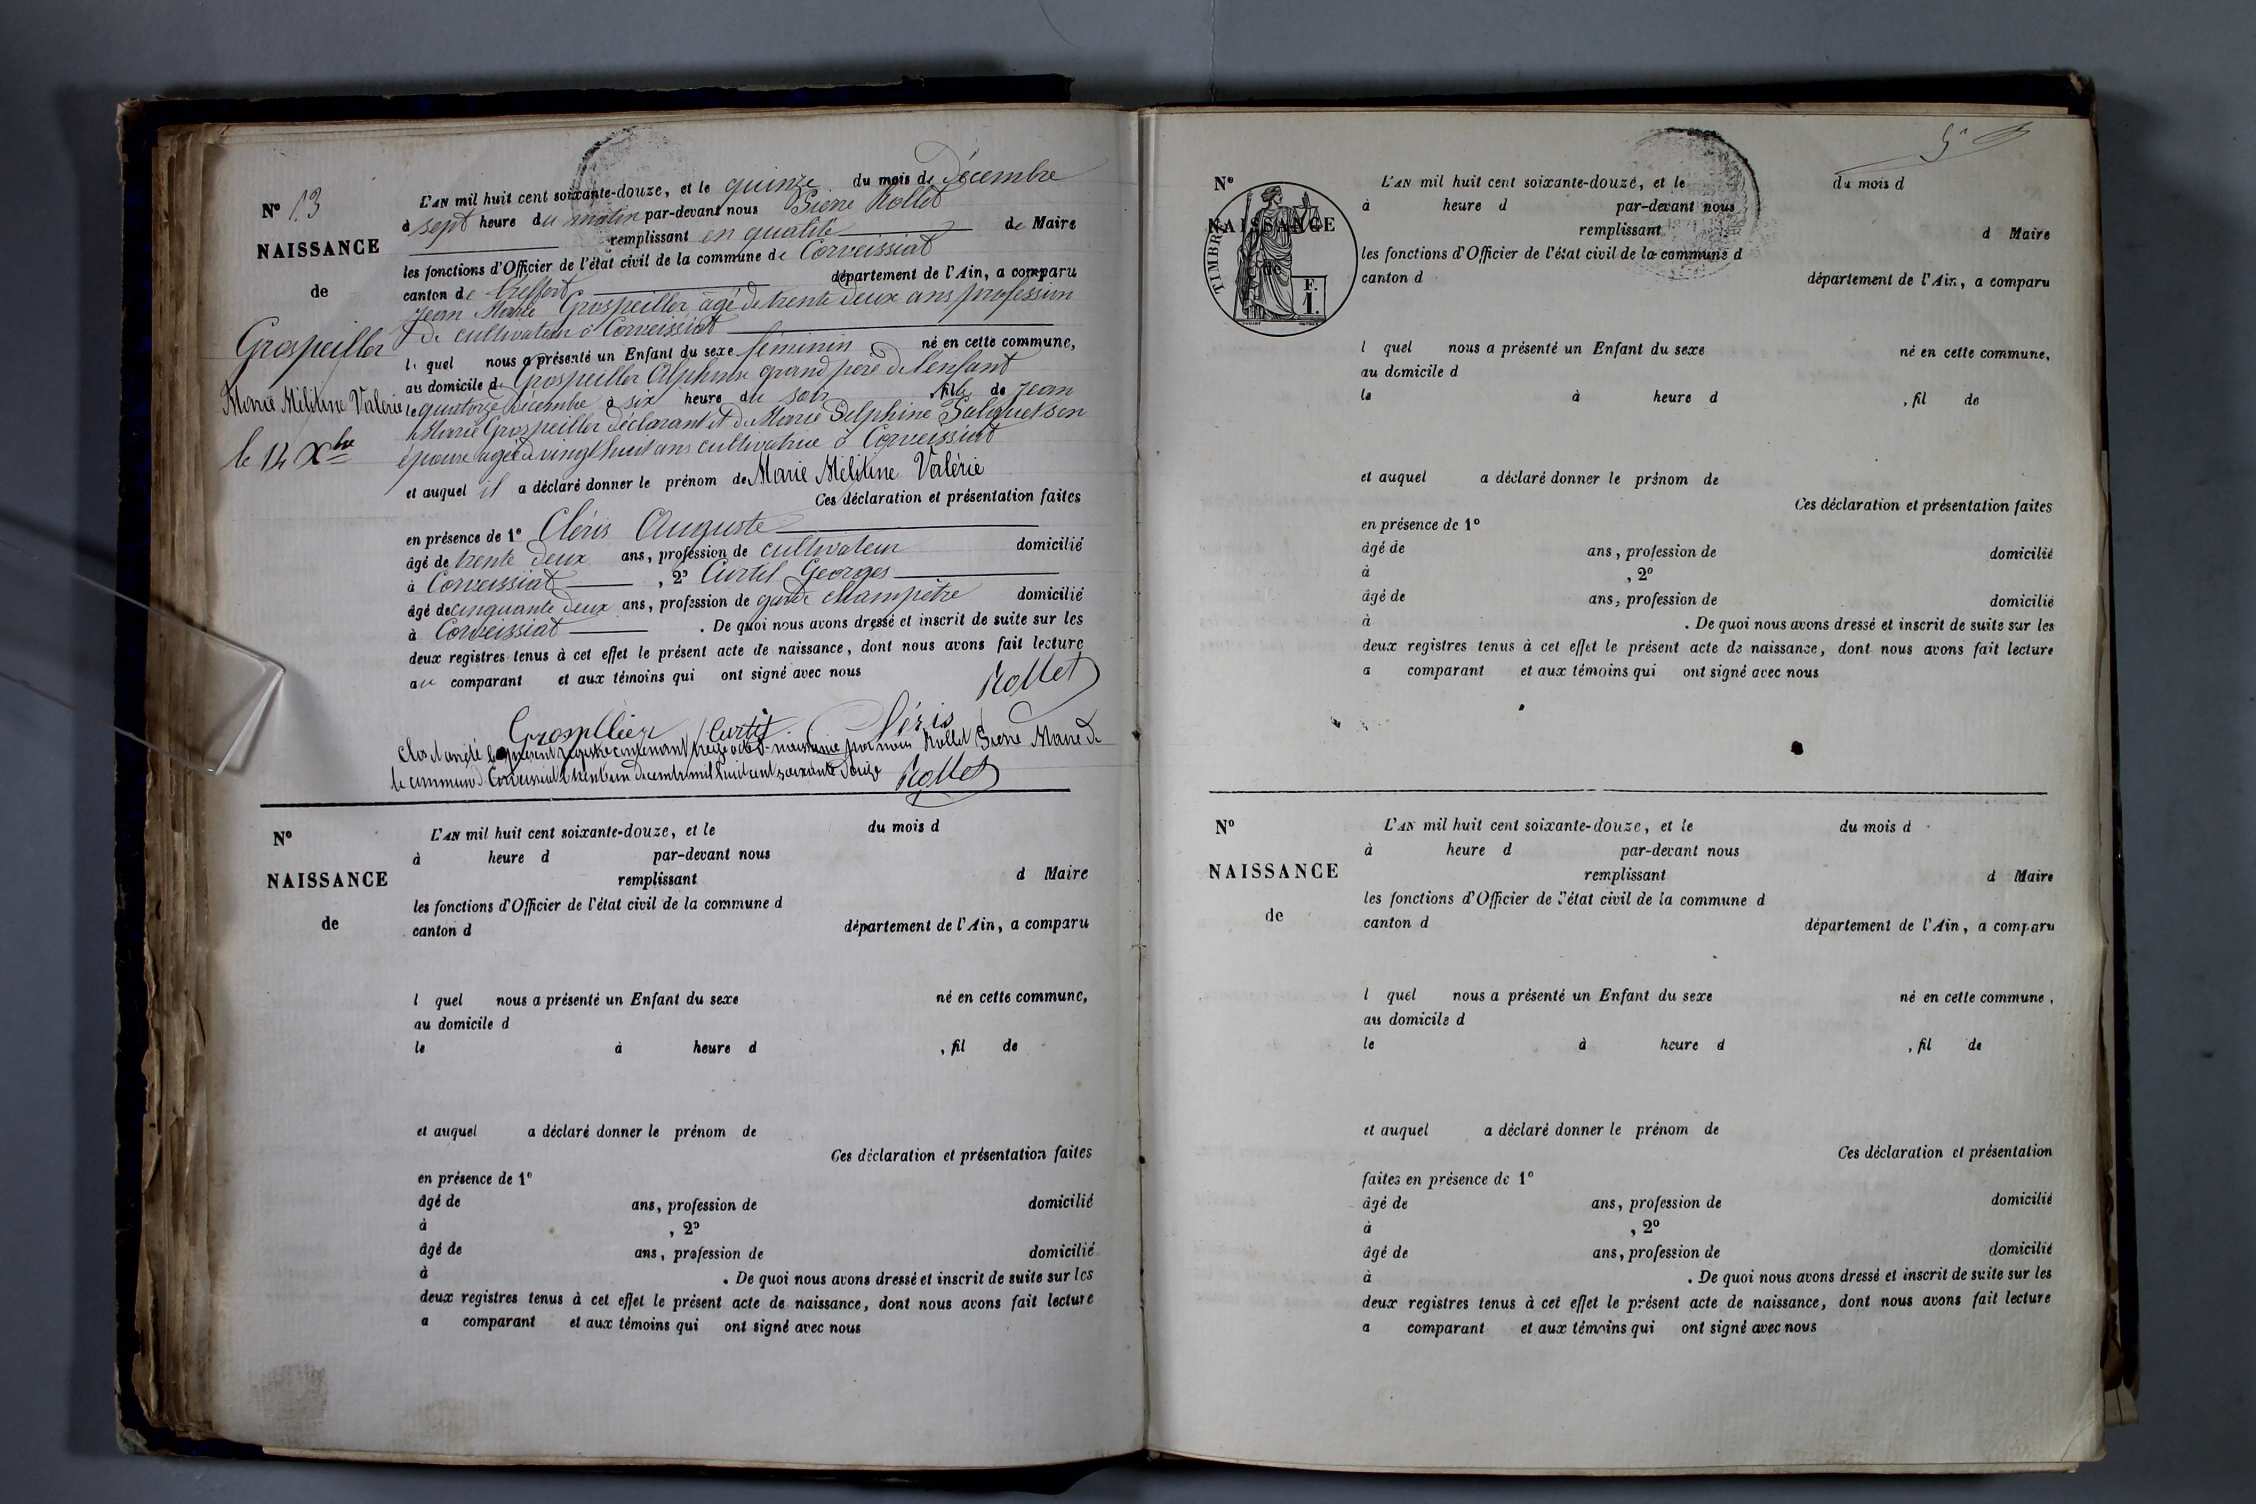 N° 13
NAISSANCE
de
Grospeiller
Marie Mélitine Valérie
le 14 Xbre
L'AN mil huit cent soixante-douze, et le quinze du mois de Décembre
à sept heure du matin par-devant nous Pierre Rollet
remplissant en qualité de Maire
les fonctions d'Officier de l'état civil de la commune de Corveissiat
canton de Treffort département de l'Ain, a comparu
Jean Marie Grospeiller âgé de trente deux ans profession
de cultivateur à Corveissiat
le quel nous a présenté un Enfant du sexe féminin né en cette commune,
au domicile de Grospeiller Alphonse grand père de l'enfant
le quatorze Décembre à six heure du soir, fille de Jean
Marie Grospeiller déclarant et de Marie Delphine
épouse agée de vingt huit ans cultivatrice à Corveissiat
et auquel il a déclaré donner le prénom de Marie Mélitine Valérie
Ces déclaration et présentation faites
en présence de 1° Cléris Auguste
âgé de trente deux ans, profession de cultivateur domicilié
à Corveissiat, 2° Curtil Georges
âgé de cinquante deux ans, profession de garde champêtre domicilié
à Corveissiat. De quoi nous avons dressé et inscrit de suite sur les
deux registres tenus à cet effet le présent acte de naissance, dont nous avons fait lecture
au comparant et aux témoins qui ont signé avec nous
Rollet
Grospellier Curtil Cléris
Clos et arrêté le présent registre contenant treize actes de naissance par nous Rollet Pierre Maire de
la commune de Corveissiat le trente un décembre mil huit cent soixante douze Rollet
N°
NAISSANCE
de
L'AN mil huit cent soixante-douze, et le du mois d
à heure d par-devant nous
remplissant d Maire
les fonctions d'Officier de l'état civil de la commune d
canton d département de l'Ain, a comparu
l quel nous a présenté un Enfant du sexe né en cette commune,
au domicile d
le à heure d , fil de
et auquel a déclaré donner le prénom de
Ces déclaration et présentation faites
en présence de 1°
âgé de ans, profession de domicilié
à , 2°
âgé de ans, profession de domicilié
à . De quoi nous avons dressé et inscrit de suite sur les
deux registres tenus à cet effet le présent acte de naissance, dont nous avons fait lecture
a comparant et aux témoins qui ont signé avec nous
N°
NAISSANCE
de
TIMBRE
F.
1.
L'AN mil huit cent soixante-douze, et le du mois d
à heure d par-devant nous
remplissant d Maire
les fonctions d'Officier de l'état civil de la commune d
canton d département de l'Ain, a comparu
l quel nous a présenté un Enfant du sexe né en cette commune,
au domicile d
le à heure d , fil de
et auquel a déclaré donner le prénom de
Ces déclaration et présentation faites
en présence de 1°
âgé de ans, profession de domicilié
à , 2°
âgé de ans, profession de domicilié
à . De quoi nous avons dressé et inscrit de suite sur les
deux registres tenus à cet effet le présent acte de naissance, dont nous avons fait lecture
a comparant et aux témoins qui ont signé avec nous
N°
NAISSANCE
de
L'AN mil huit cent soixante-douze, et le du mois d
à heure d par-devant nous
remplissant d Maire
les fonctions d'Officier de l'état civil de la commune d
canton d département de l'Ain, a comparu
l quel nous a présenté un Enfant du sexe né en cette commune,
au domicile d
le à heure d , fil de
et auquel a déclaré donner le prénom de
Ces déclaration et présentation
faites en présence de 1°
âgé de ans, profession de domicilié
à , 2°
âgé de ans, profession de domicilié
à . De quoi nous avons dressé et inscrit de suite sur les
deux registres tenus à cet effet le présent acte de naissance, dont nous avons fait lecture
a comparant et aux témoins qui ont signé avec nous